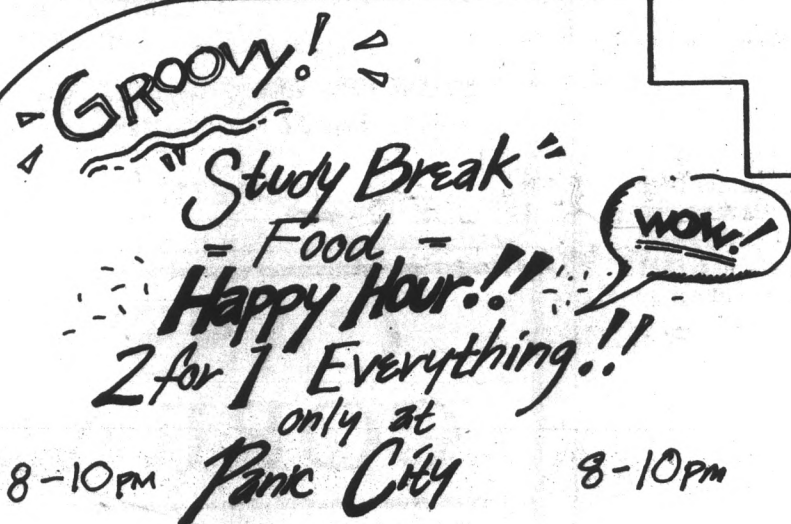 GROOVY!
"Study Break"
= Food =
Happy Hour!!
WOW!
2 for 1 Everything!!
only at
8-10PM Panic City 8-10pm